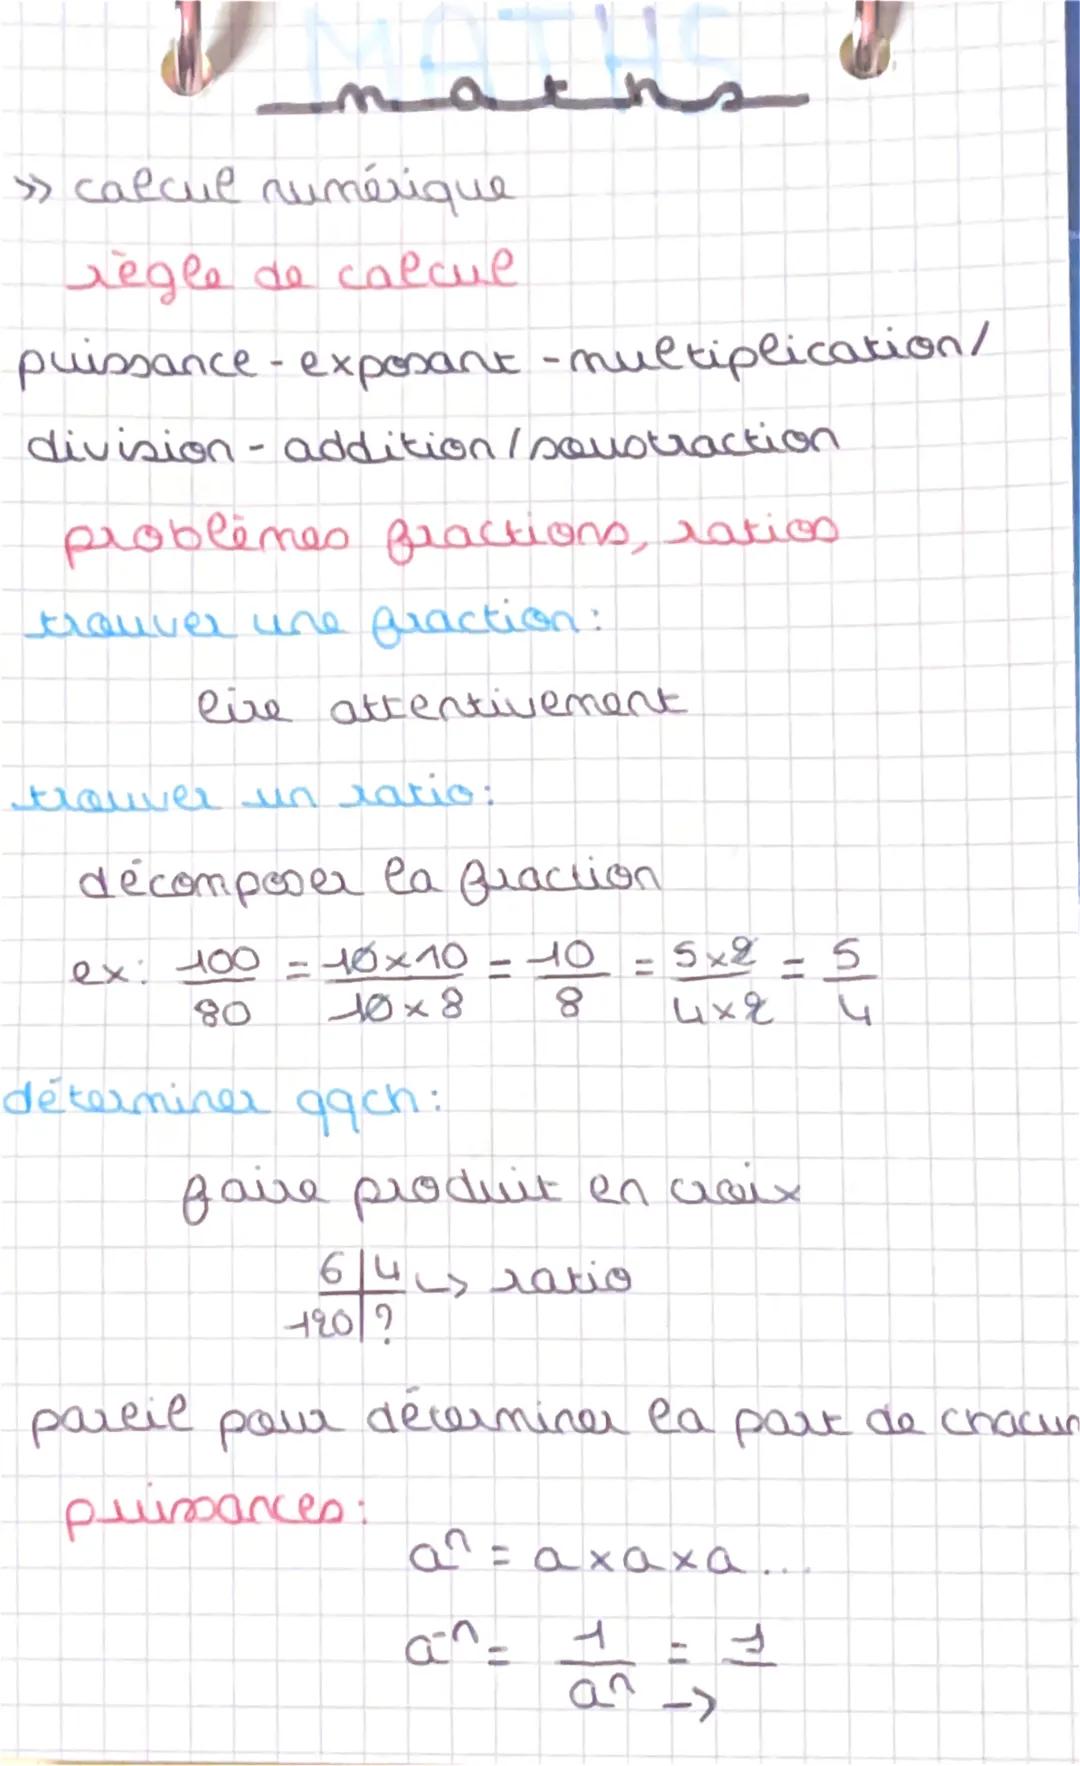 MATHS
maths
>> calcul numérique
règle de calcul
puissance - exposant - multiplication/
division - addition / soustraction
problèmes fractions, ratios
trouver une fraction:
lire attentivement
trouver un ratio:
décomposer la fraction
ex: 100/80 = 10×10/10×8 = 10/8 = 5×2/4×2 = 5/4
déterminer qqch:
faire produit en croix
6 | 4 ↪ ratio
120 | ?
pareil pour déterminer la part de chacun
puissances:
aⁿ = a×a×a...
a⁻ⁿ = 1/aⁿ = 1/→